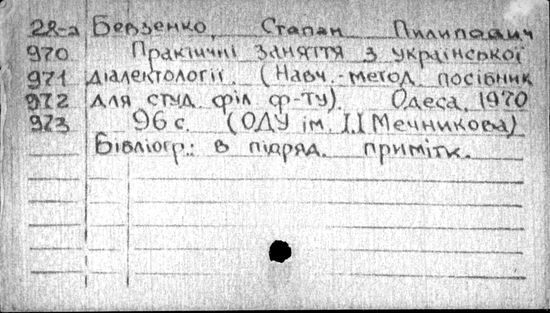 28-а Бевзенко, Степан Пилипович
970 Практичні заняття з української
971 діалектології. (Навч.-метод. посібник
972 для студ. філ. ф-ту). Одеса, 1970
973 96 с. (ОДУ ім. І.І Мечникова)
Бібліогр.: в підряд. примітк.